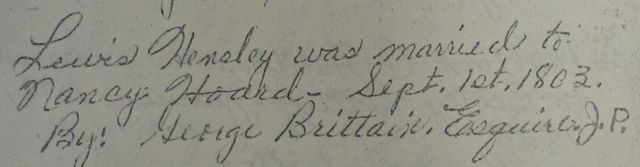 Lewis Hensley was married to
Nancy Hoard - Sept. 1st. 1803.
By: George Brittain. Esquire. J. P.